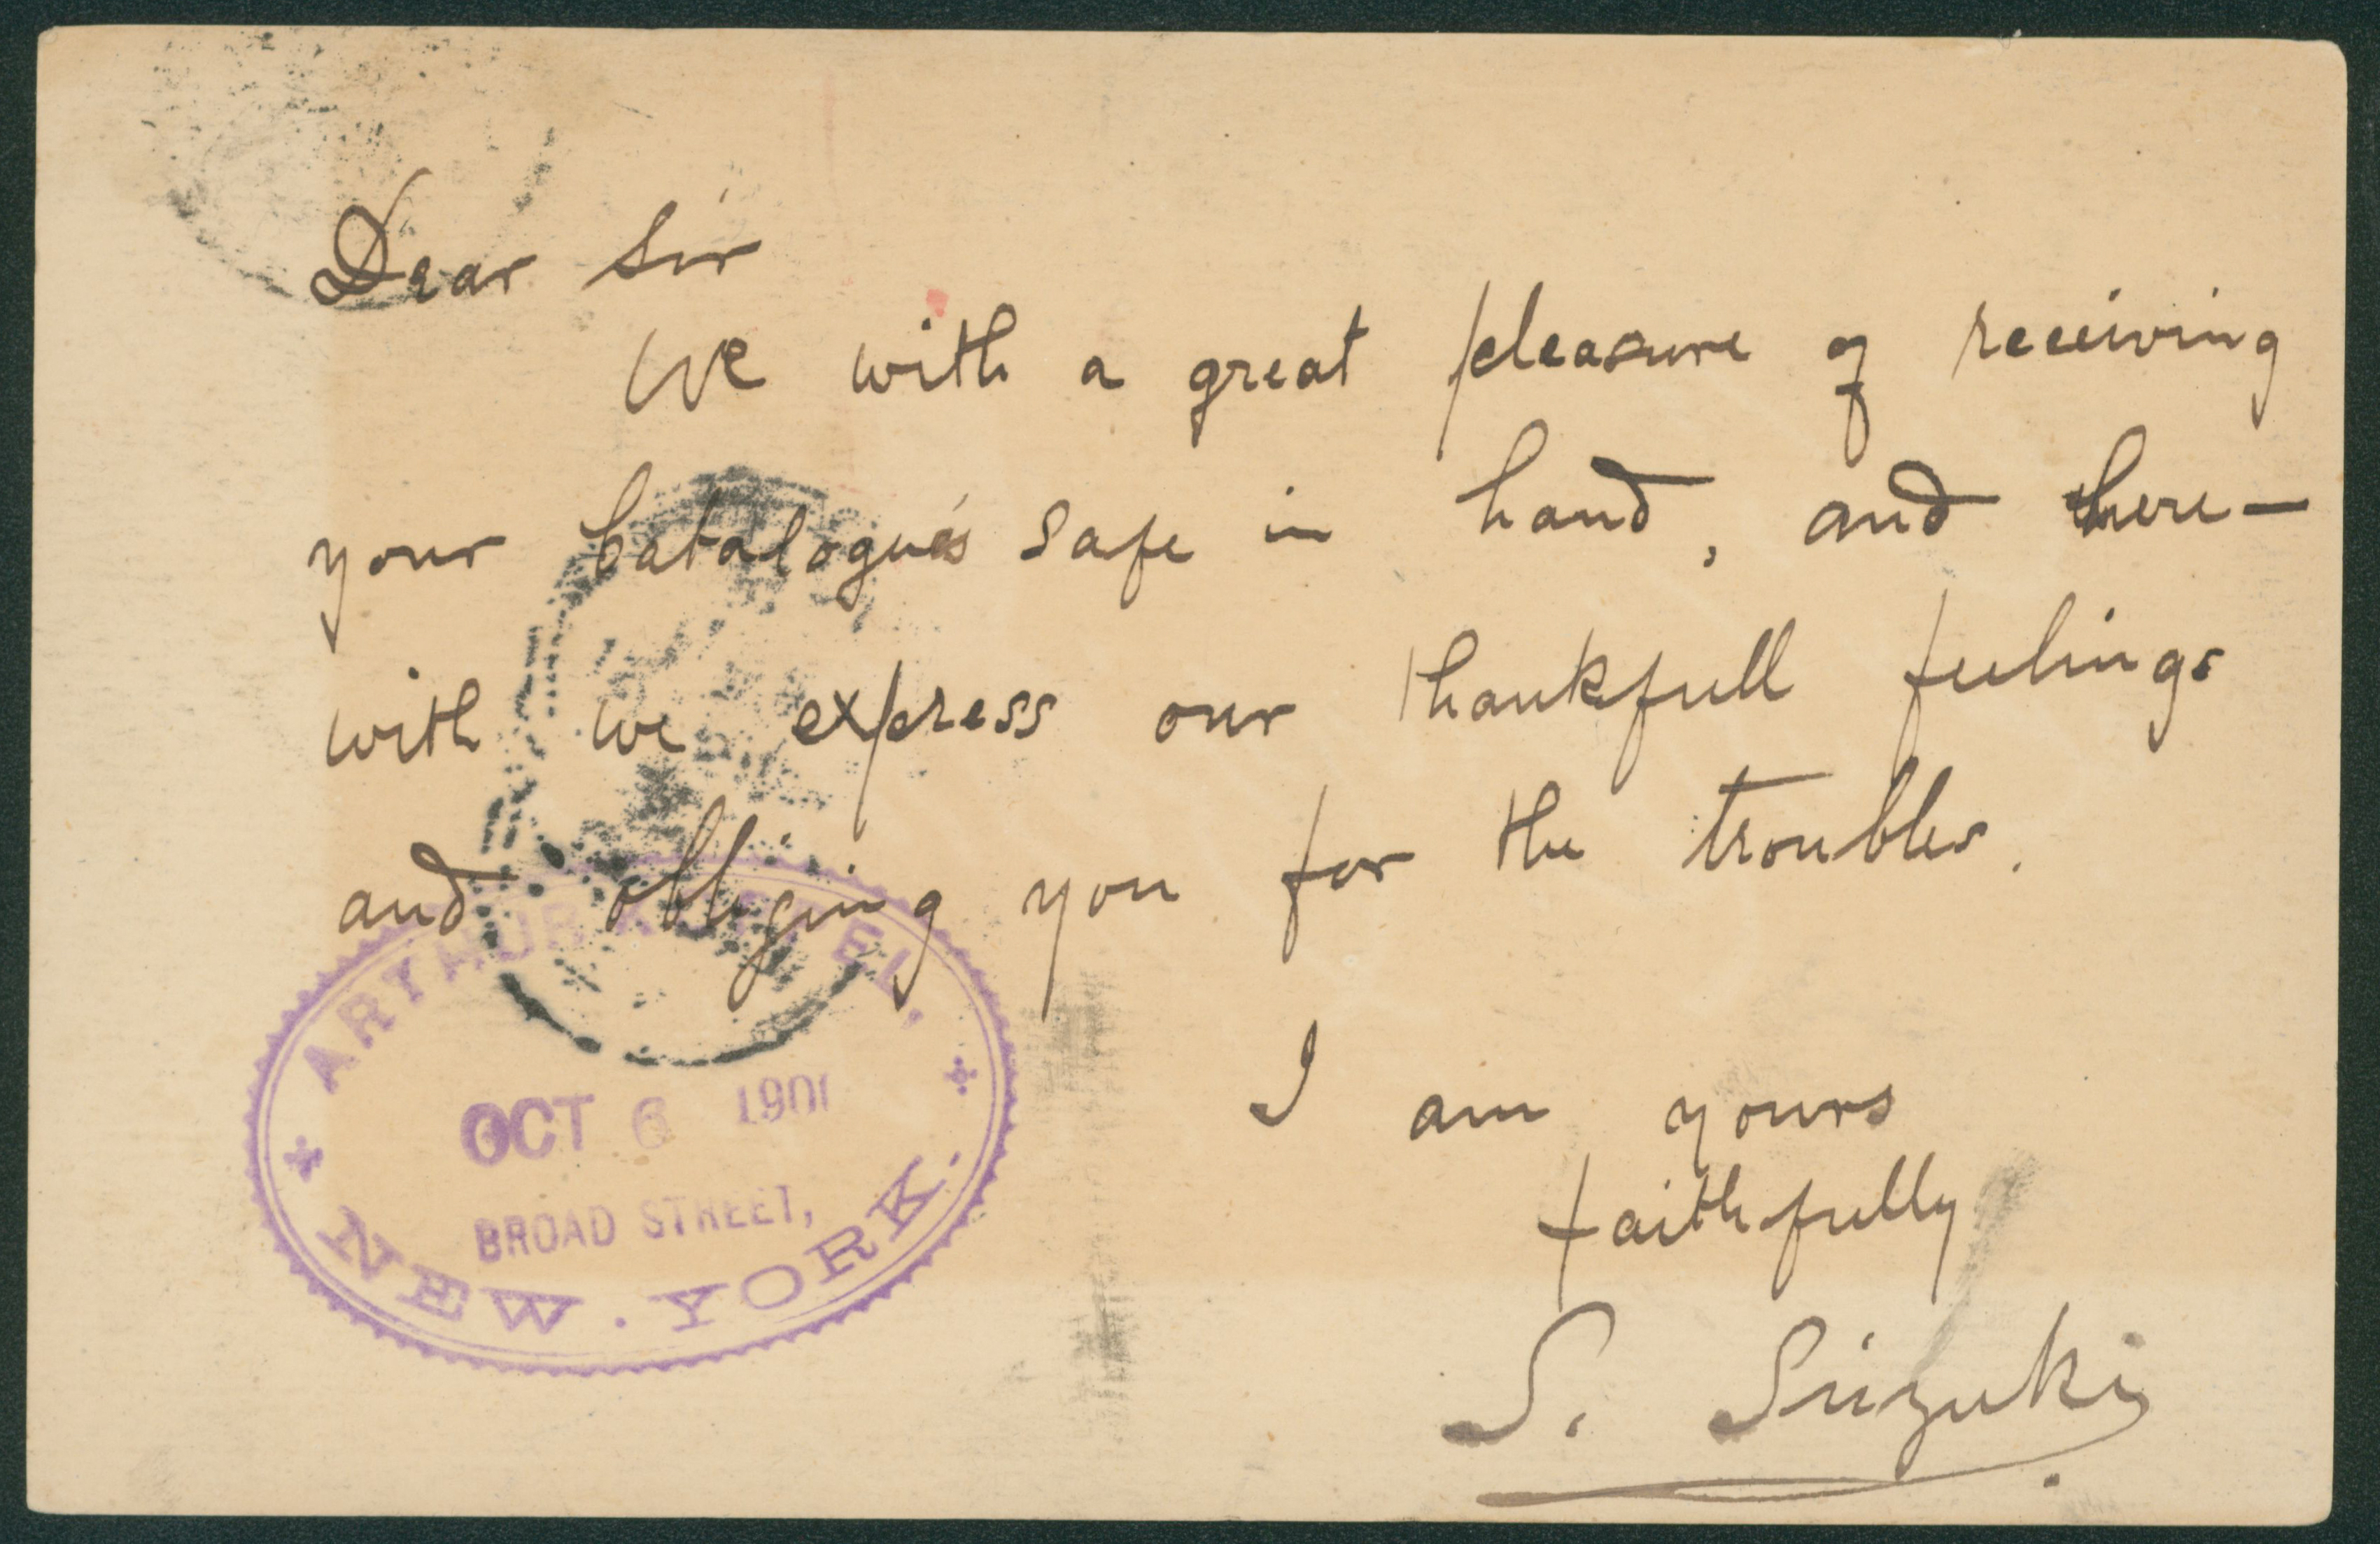 Dear Sir
We with a great pleasure of receiving
your Catalogues safe in hand, and here-
with we express our thankfull feelings
and obliging you for the troubles.
I am yours
faithfully
S. Suzuki
ARTHUR
OCT 6 1901
BROAD STREET,
NEW. YORK.